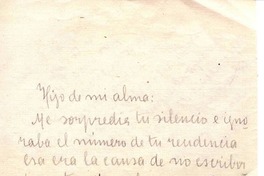 Hijo de mi alma:
Me sorpredia tu silencio e igno
raba el número de tu recidencia
era era la causa de no escribir